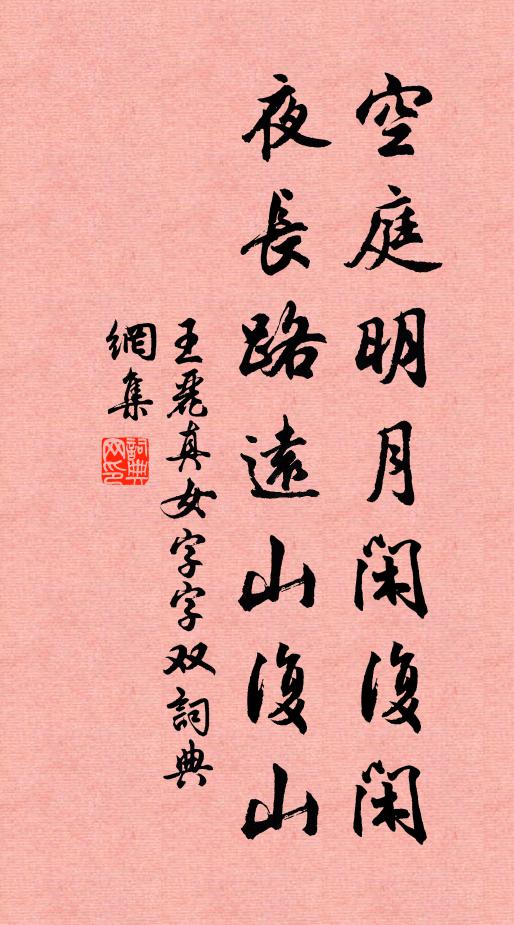 空庭明月閑復閑
夜長路遠山復山
王麗真女字字双詞典
網集
詞典網印